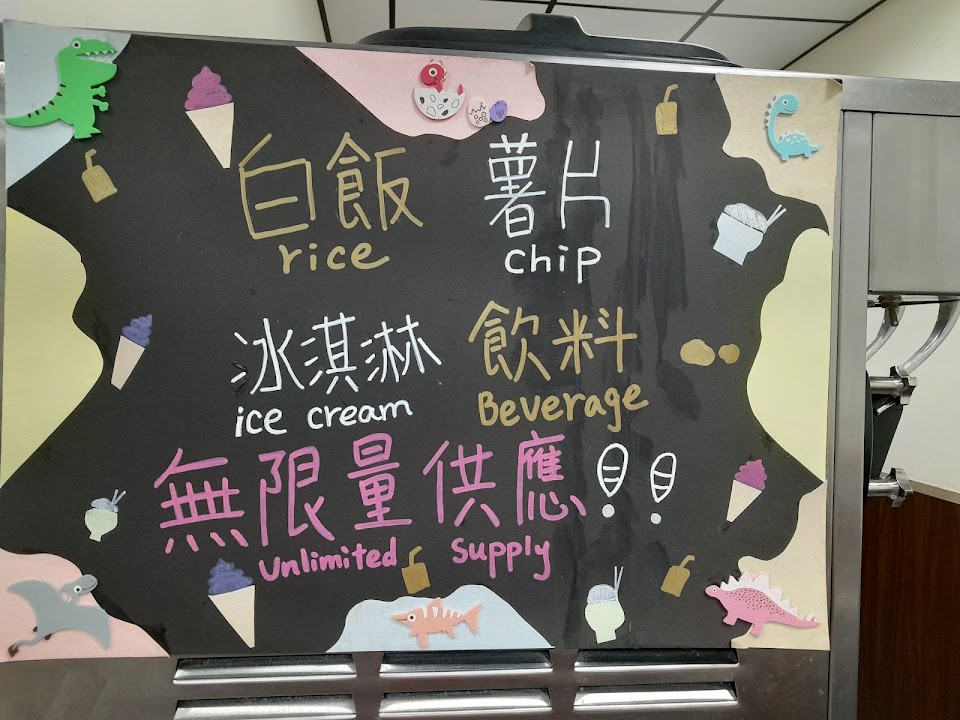 白飯 薯片
rice chip
冰淇淋 飲料
ice cream Beverage
無限量供應!!
unlimited supply